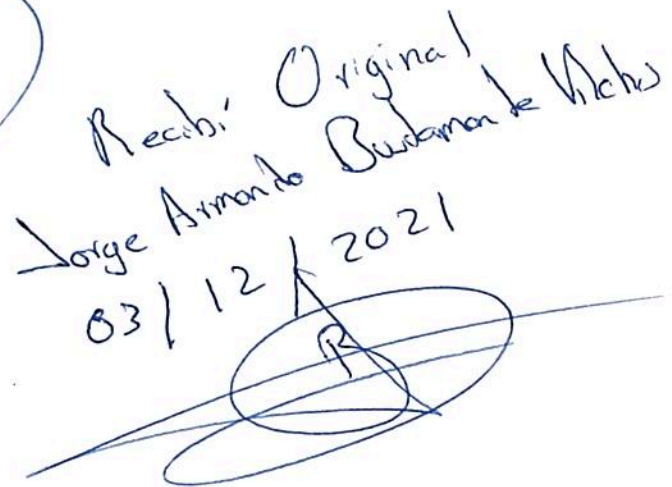 Recibí Original
Jorge Armando Bustamante Vilchis
03/12/2021